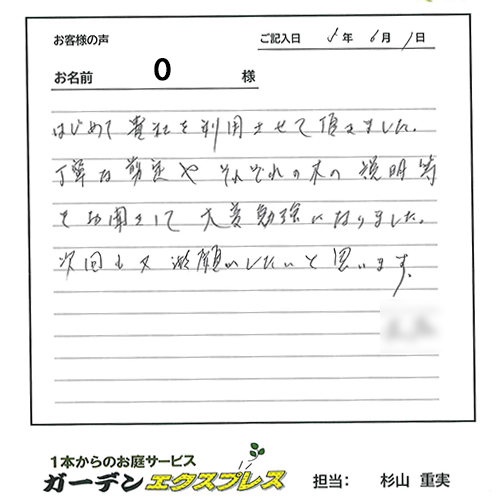 お客様の声
ご記入日 5年 6月 1日
お名前 O 様
はじめて貴社を利用させて頂きました。
丁寧な剪定やそれぞれの木の説明等
をお聞きして大変勉強になりました。
次回も又お願いしたいと思います。
1本からのお庭サービス
ガーデンエクスプレス 担当: 杉山 重実